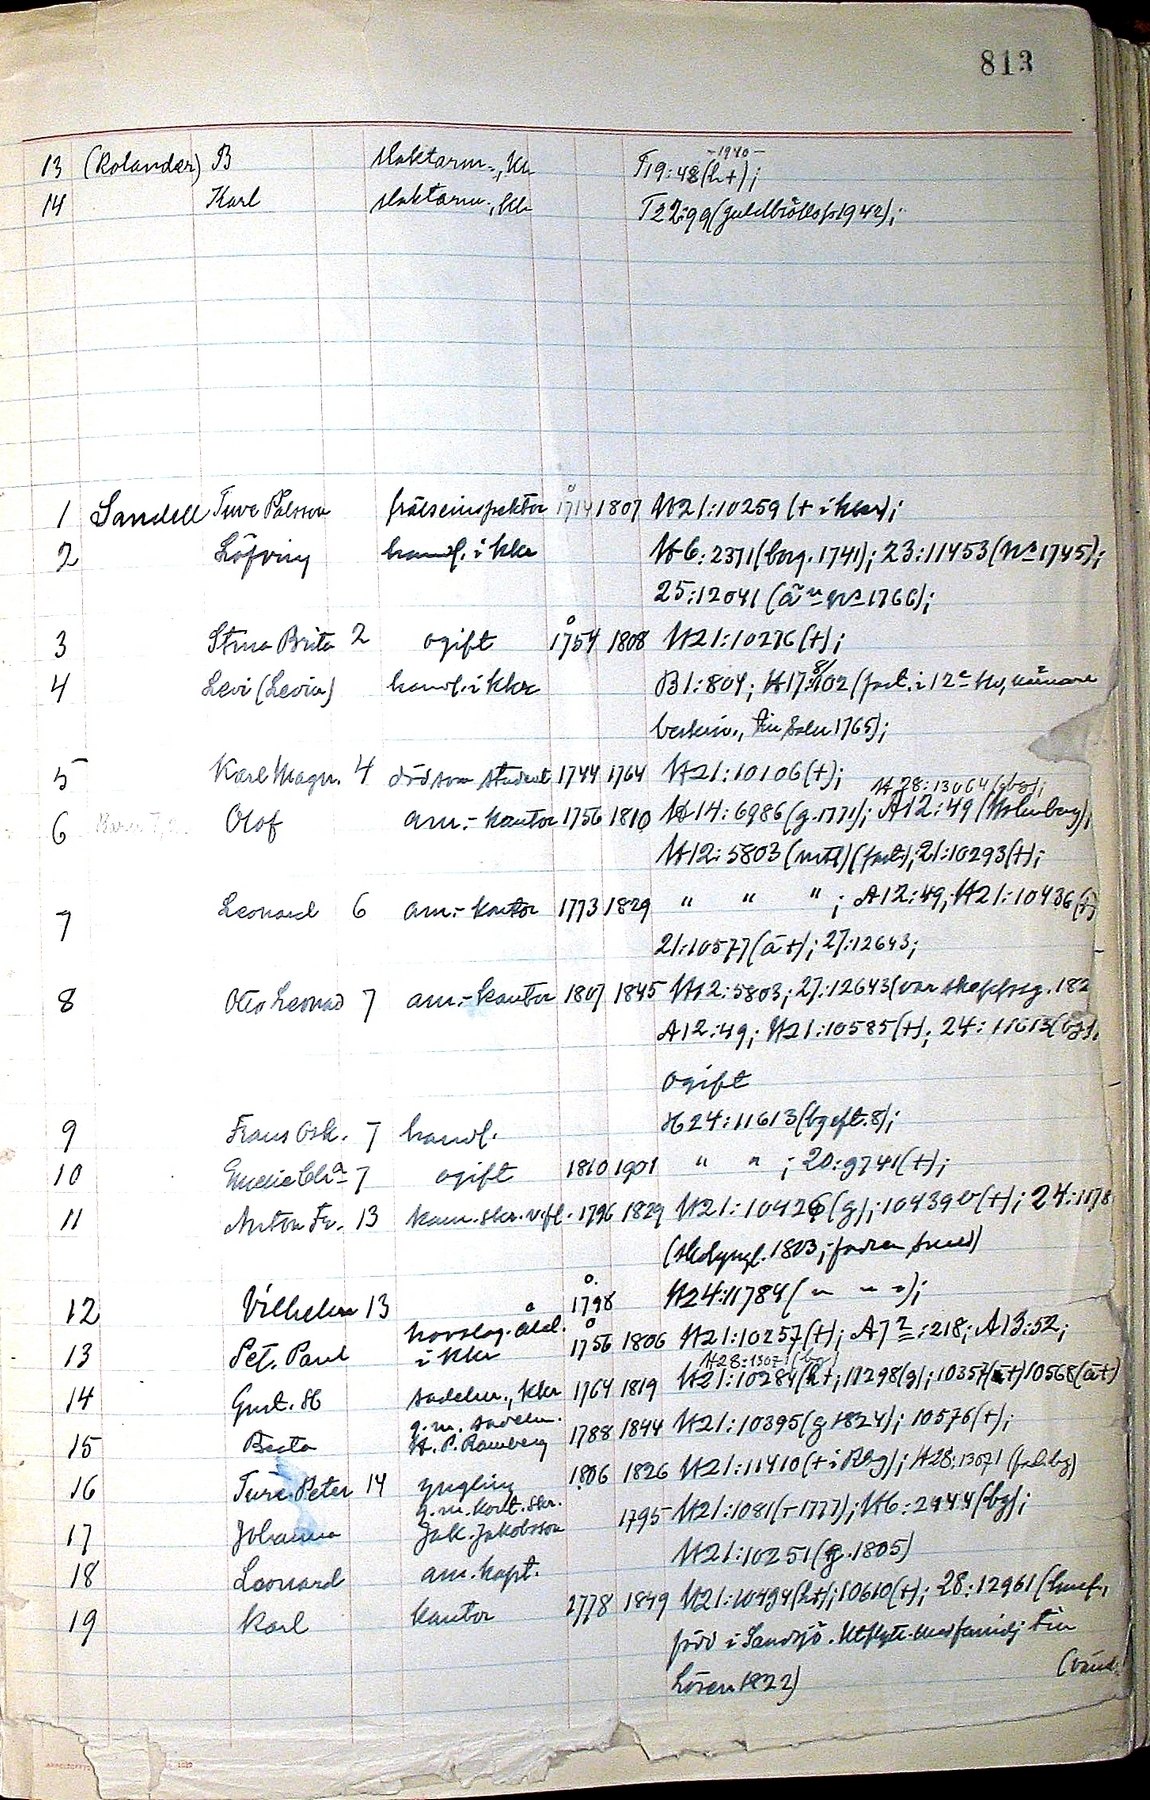 813
13 (Rolander) B slaktarm., Kkr T19:48(h+); -1940-
14 Karl slaktarm., Kkr T22:99(guldbröllop 1942);
1 Sandell Ture Pålsson frälseinspektor 1714 1807 H21:10259 (+ i kkr);
2 Löfving handl. i kkr H6:2371(borg. 1741); 23:11453(1745);
25:12041 (1766);
3 Stina Brita 2 ogift 1754 1808 H21:10276(+);
4 Levi (Levin) handl. i kkr B1:804; H17:8102 (fast. i 12
1765);
5 Karl Magn. 4 död som student 1744 1764 H21:10106(+);
H28:13064(gbg);
6 Olof am.-kantor 1756 1810 H14:6986(g.1771); A12:49 (Holmberg);
H12:5803 (fast); 21:10293(+);
7 Leonard 6 am.-kantor 1773 1829 " " " ; A12:49; H21:10436(+)
21:10577(ä+); 27:12643;
8 Otto Leonard 7 am.-kantor 1807 1845 H12:5803; 27:12643(var skeppsg. 182
A12:49; H21:10585(+); 24:11613(bg);
ogift
9 Frans Osk. 7 handl. H24:11613(bg eft. 8);
10 7 ogift 1810 1901 " " ; 20:9741(+);
11 Anton Fr. 13 kam.skr. v.fl. 1796 1829 H21:10426(g); 10439(+); 24:1178
1803; fadren smed)
12 Vilhelm 13 1798 H24:11784( " " " );
13 Pet. Paul hovslag.åld. i kkr 1756 1806 H21:10257(+); A7:218; A13:52;
H28:13071(bg)
14 Gust. H sadelm., kkr 1764 1819 H21:10284(h+; 11298(g); 10357(ä+) 10568(ä+)
15 Beata g.m. sadelm. H. P. Ramberg 1788 1844 H21:10395(g 1824); 10576(+);
16 Ture Peter 14 yngling 1806 1826 H21:11410(+ i Rbg); H28:13071 (fad. bg)
17 Johanna g.m. kort.skr. Jak. Jakobsson 1795 H21:1081(r 1777); H6:2444(bg);
18 Leonard am. kapt. H21:10251(g. 1805)
19 Karl kantor 1778 1849 H21:10494(h+); 10610(+); 28:12961
född i Sandsjö. Utflytt. med familj t
Lösen 1822)
(vänd